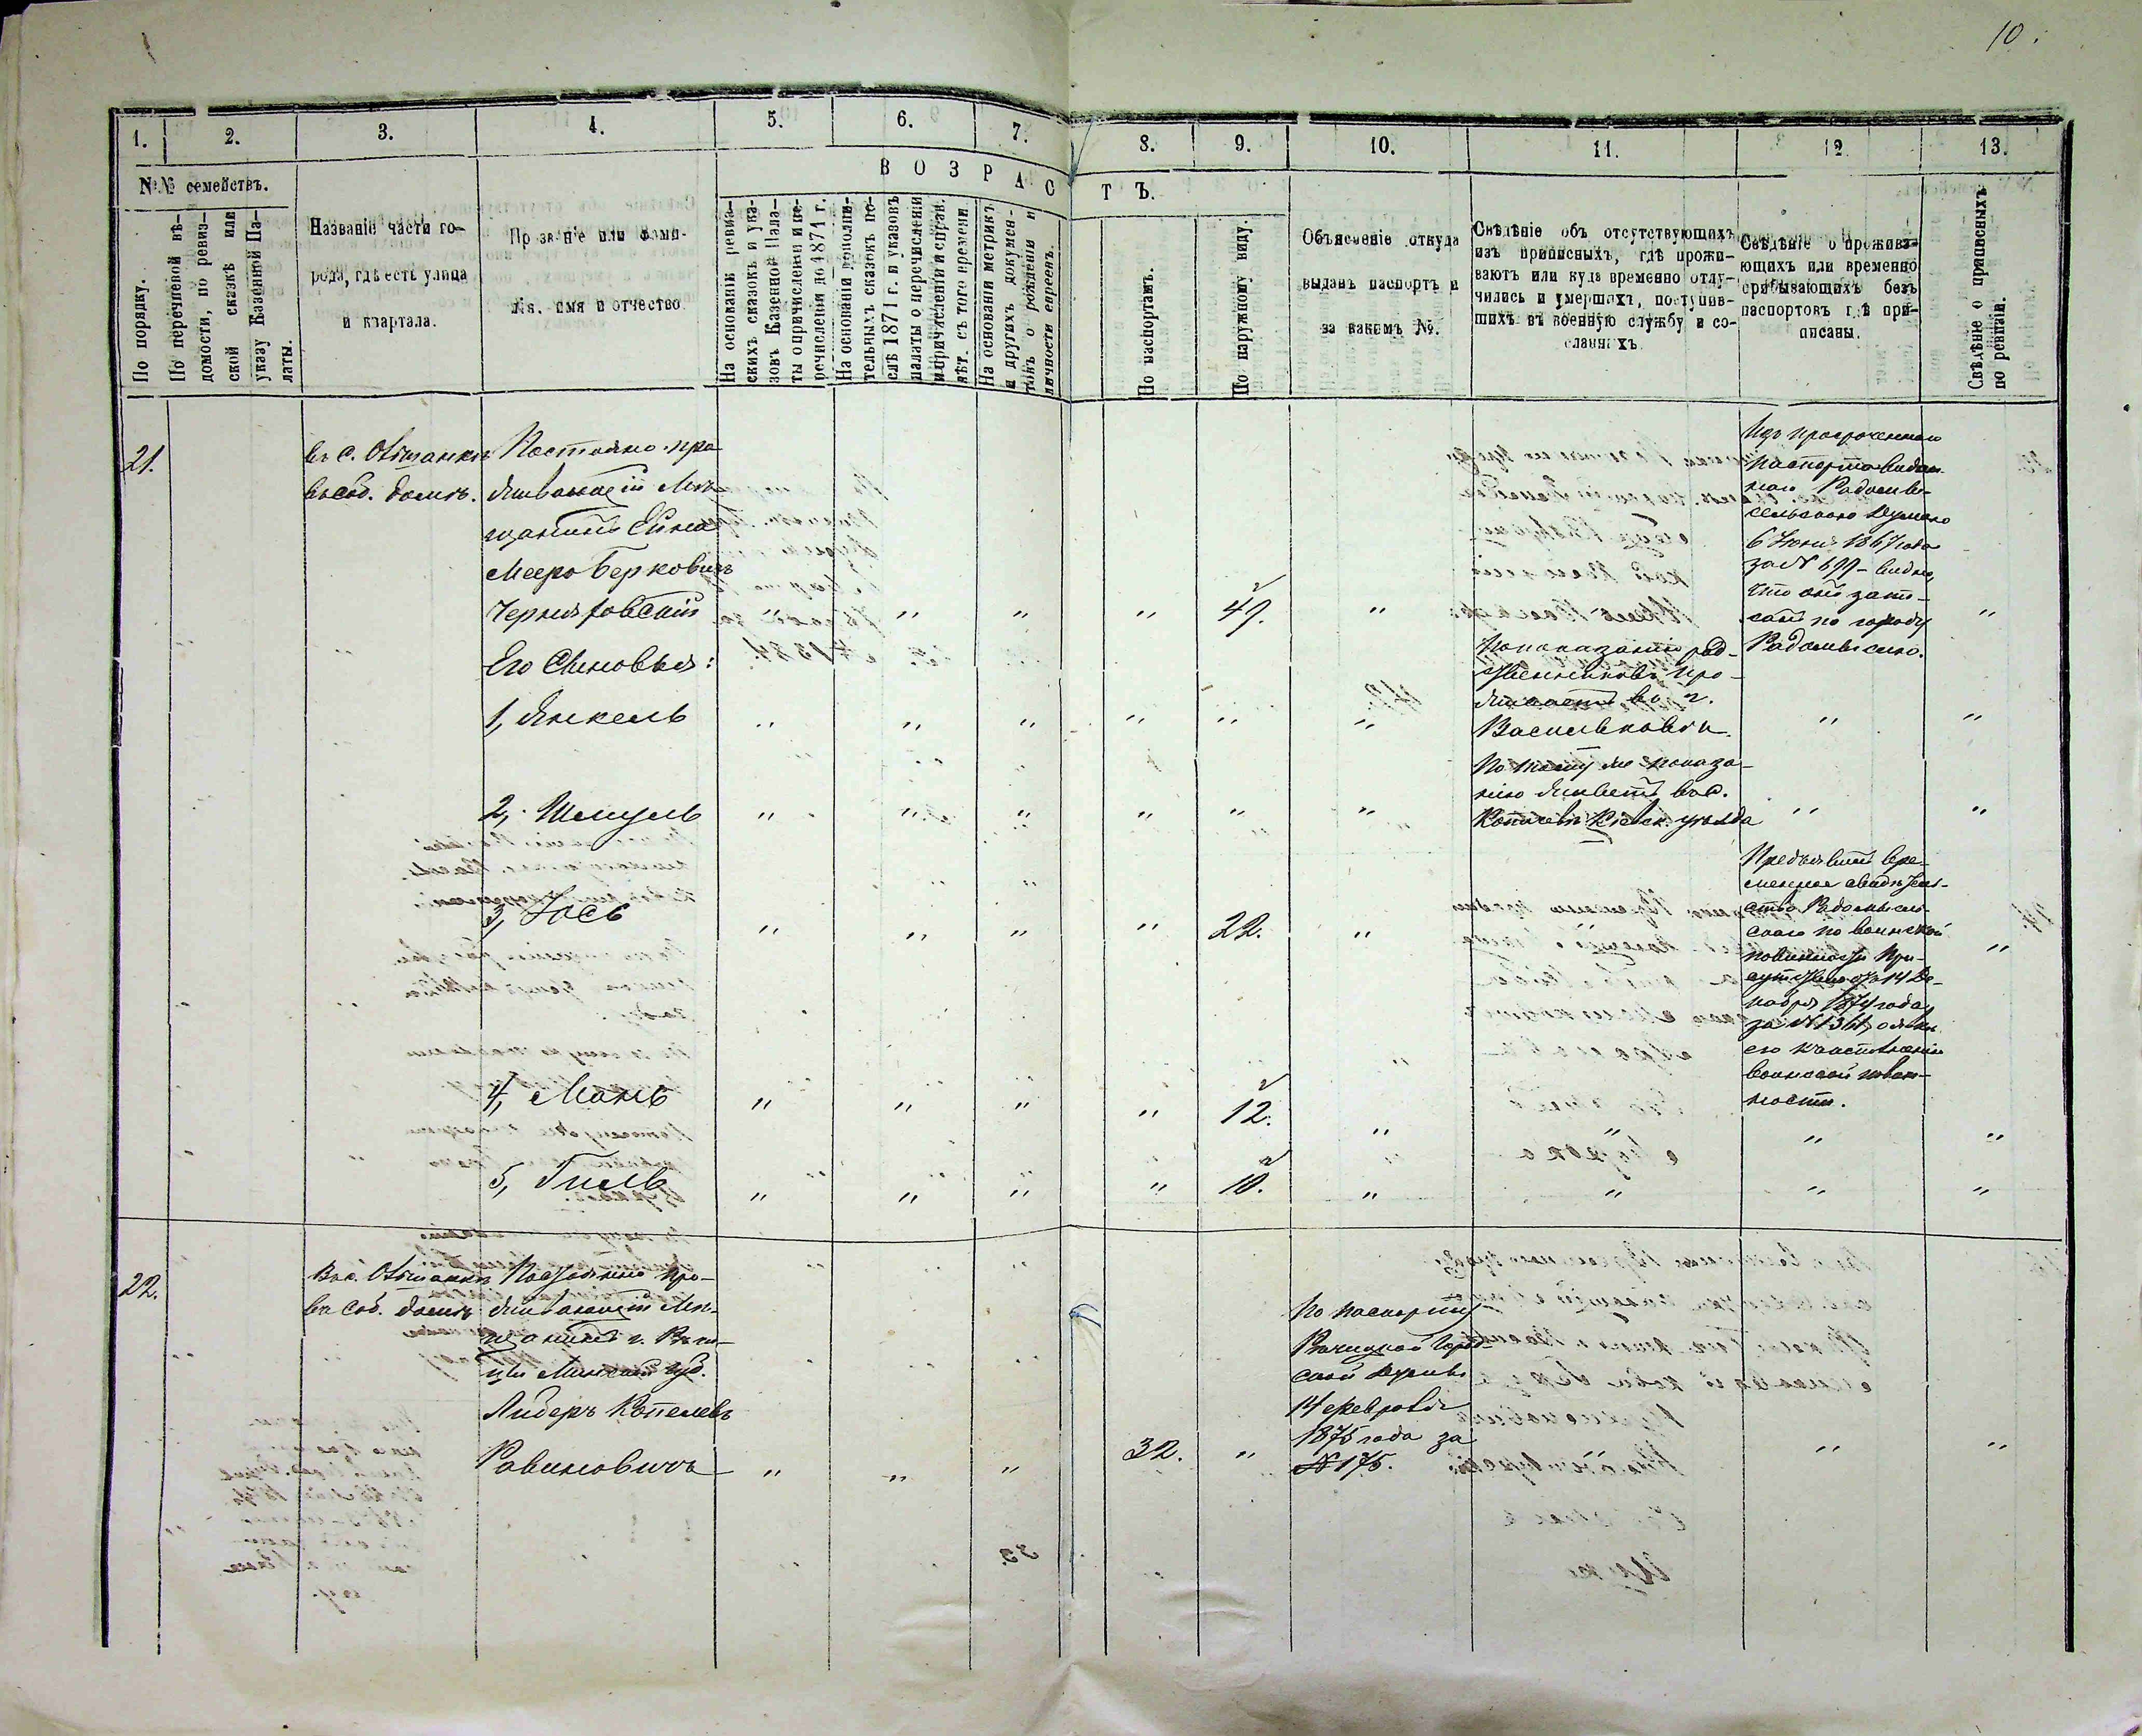 10.
1.
2.
3.
4.
5.
6.
7.
8.
9.
10.
11.
12
13.
В О З Р А С Т Ъ.
№№ семействъ.
По порядку.
По перечневой вѣ-
домости, по ревиз-
ской сказкѣ или
указу Казенной Па-
латы.
Названіе части го-
рода, гдѣ есть улица
и квартала.
Прозваніе или фами-
лія, имя и отчество
На основаніи ревиз-
скихъ сказокъ и ука-
зовъ Казенной Пала-
ты о причисленіи и пе-
речисленіи до 1871 г.
На основаніи дополни-
тельныхъ сказокъ по-
слѣ 1871 г. и указовъ
палаты о перечисленіи
и причисленіи и справ.
лѣт. съ того времени.
На основаніи метрикъ
и другихъ докумен-
товъ о рожденіи и
личности евреевъ.
По паспортамъ.
По наружному виду.
Объясненіе откуда
выданъ паспортъ и
за какимъ №.
Свѣдѣніе объ отсутствующихъ
изъ приписныхъ, гдѣ прожи-
ваютъ или куда временно отлу-
чились и умершихъ, поступив-
шихъ въ военную службу и со-
сланныхъ
Свѣдѣніе о прожива-
ющихъ или временно
пребывающихъ безъ
паспортовъ гдѣ при-
писаны.
Свѣдѣніе о приписныхъ
по ревизіи.
21.
въ с. Ольшанкѣ
въ соб. домѣ.
Постоянно про-
живающій Мѣ-
щанинъ
Мееръ Берковичъ
Черняховскій
" " " 49. " "
Изъ просроченнаго
паспорта выдан-
наго Радомы-
сельскою Думою
6 Іюня 1867 года
за № 699 - видно,
что онъ запи-
санъ по городу
Радомыслю.
Его Сыновья:
1, Янкель
" " " " " " " "
По показанію род-
ственниковъ про-
живаетъ въ г.
Васильковѣ
2, Шмуль
" " " " " " " "
По тому же показа-
нію живетъ въ с.
Кіевск. уѣзда
3, Іось
" " " " 22. " "
Предъявилъ вре-
менное свидѣтель-
ство Радомысль-
скаго по воинской
повинности При-
сутствія отъ 14 Де-
кабря 1874 года
за № 1361, о явкѣ
его къ исполненію
воинской повин-
ности.
4,
" " " " 12. " " " "
5, Гиль
" " " " 10. " " " "
22.
Въ с. Ольшанкѣ
въ соб. домѣ
Постоянно про-
живающій Мѣ-
щанинъ г.
Минской губ.
Либеръ Копелевъ
Рабиновичъ
" " " 32. " " " "
По паспорту
Город-
ской Думы
14 февраля
1875 года за
№ 175.